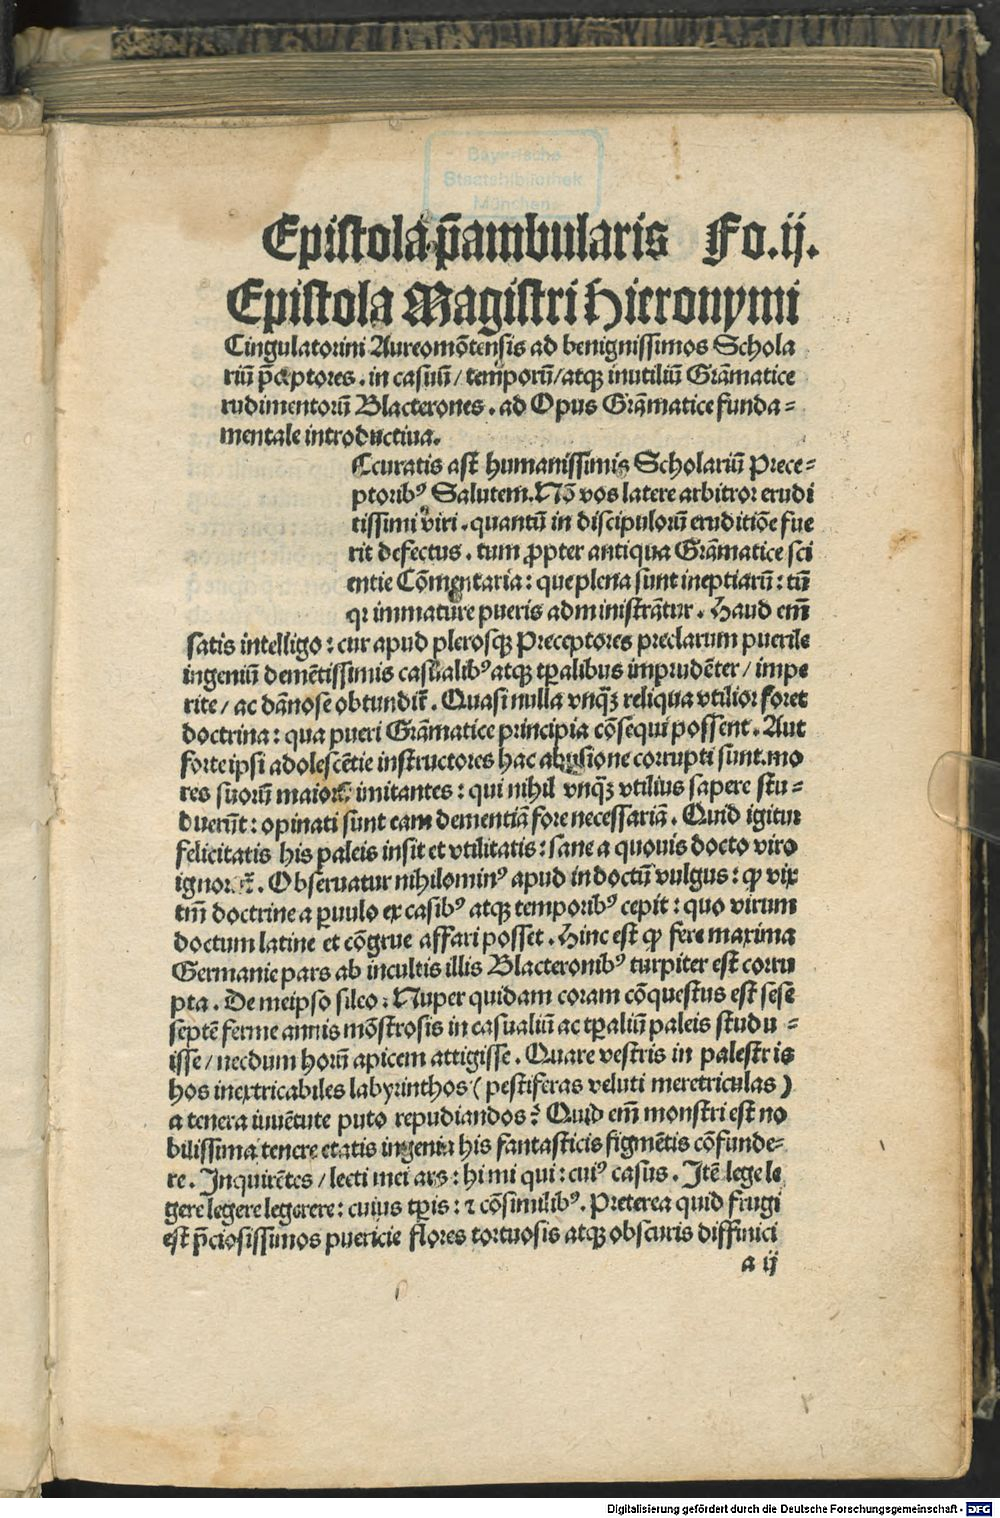 Bayerische
Staatsbibliothek
München
Epistola p̄ambularis Fo.ij.
Epistola Magistri Hieronymi
Cingulatorini Aureomōtensis ad benignissimos Schola
riū p̄ceptores. in casuū/ temporū/ atqꝫ inutiliū Grāmatice
rudimentorū Blacterones. ad Opus Grāmatice funda⸗
mentale introductiua.
Ccuratis ast humanissimis Scholariū Prece⸗
ptoribꝰ Salutem. Nō vos latere arbitror erudi
tissimi viri. quantū in discipulorū eruditiōe fue
rit defectus. tum ꝓpter antiqua Grāmatice sci
entie Cōmentaria: que plena sunt ineptiarū: tū
qꝛ immature pueris administrātur. Haud em̄
satis intelligo: cur apud plerosqꝫ Preceptores preclarum puerile
ingeniū demētissimis casualibꝰ atqꝫ tꝑalibus imprudēter/ impe
rite/ ac dānose obtundit̄. Quasi nulla vnqꝫ̄ reliqua vtilior foret
doctrina: qua pueri Grāmatice principia cōsequi possent. Aut
forte ipsi adolescētie instructores hac abusione corrupti sunt. mo
res suorū maiorꝝ imitantes: qui nihil vnqꝫ̄ vtilius sapere stu⸗
duerūt: opinati sunt eam dementiā fore necessariā. Quid igitur
felicitatis his paleis insit et vtilitatis: sane a quouis docto viro
ignorat̄. Obseruatur nihilominꝰ apud indoctū vulgus: ꝙ vix
tm̄ doctrine a paruulo ex casibꝰ atqꝫ temporibꝰ cepit: quo virum
doctum latine et cōgrue affari posset. Hinc est ꝙ fere maxima
Germanie pars ab incultis illis Blacteronibꝰ turpiter est corru
pta. De meipso sileo: Nuper quidam coram cōquestus est sese
septē ferme annis mōstrosis in casualiū ac tꝑaliū paleis studu⸗
isse/ necdum horū apicem attigisse. Quare vestris in palestris
hos inextricabiles labyrinthos (pestiferas veluti meretriculas)
a tenera iuuētute puto repudiandos? Quid em̄ monstri est no
bilissima tenere etatis ingenia his fantasticis figmētis cōfunde⸗
re. Inquirētes/ lecti mei ars: hi mi qui: cuiꝰ casus. Itē lege le
gere legere legerere: cuius tꝑis: ⁊ cōsimilibꝰ. Preterea quid frugi
est p̄ciosissimos puericie flores tortuosis atqꝫ obscuris diffinici
a ij
Digitalisierung gefördert durch die Deutsche Forschungsgemeinschaft - DFG